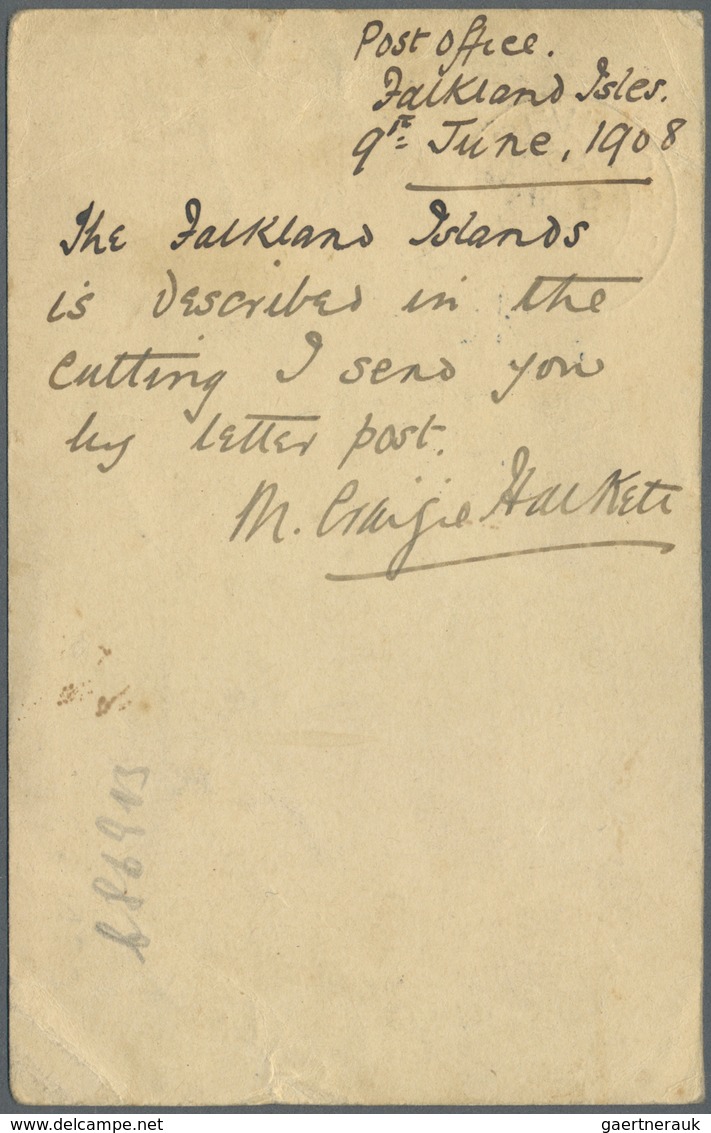 Post office.
Falkland Isles.
9th June, 1908
The Falkland Islands
is described in the
cutting I send you
by letter post.
M. Craigie Halkett
delcampe.net
gaertnerauk